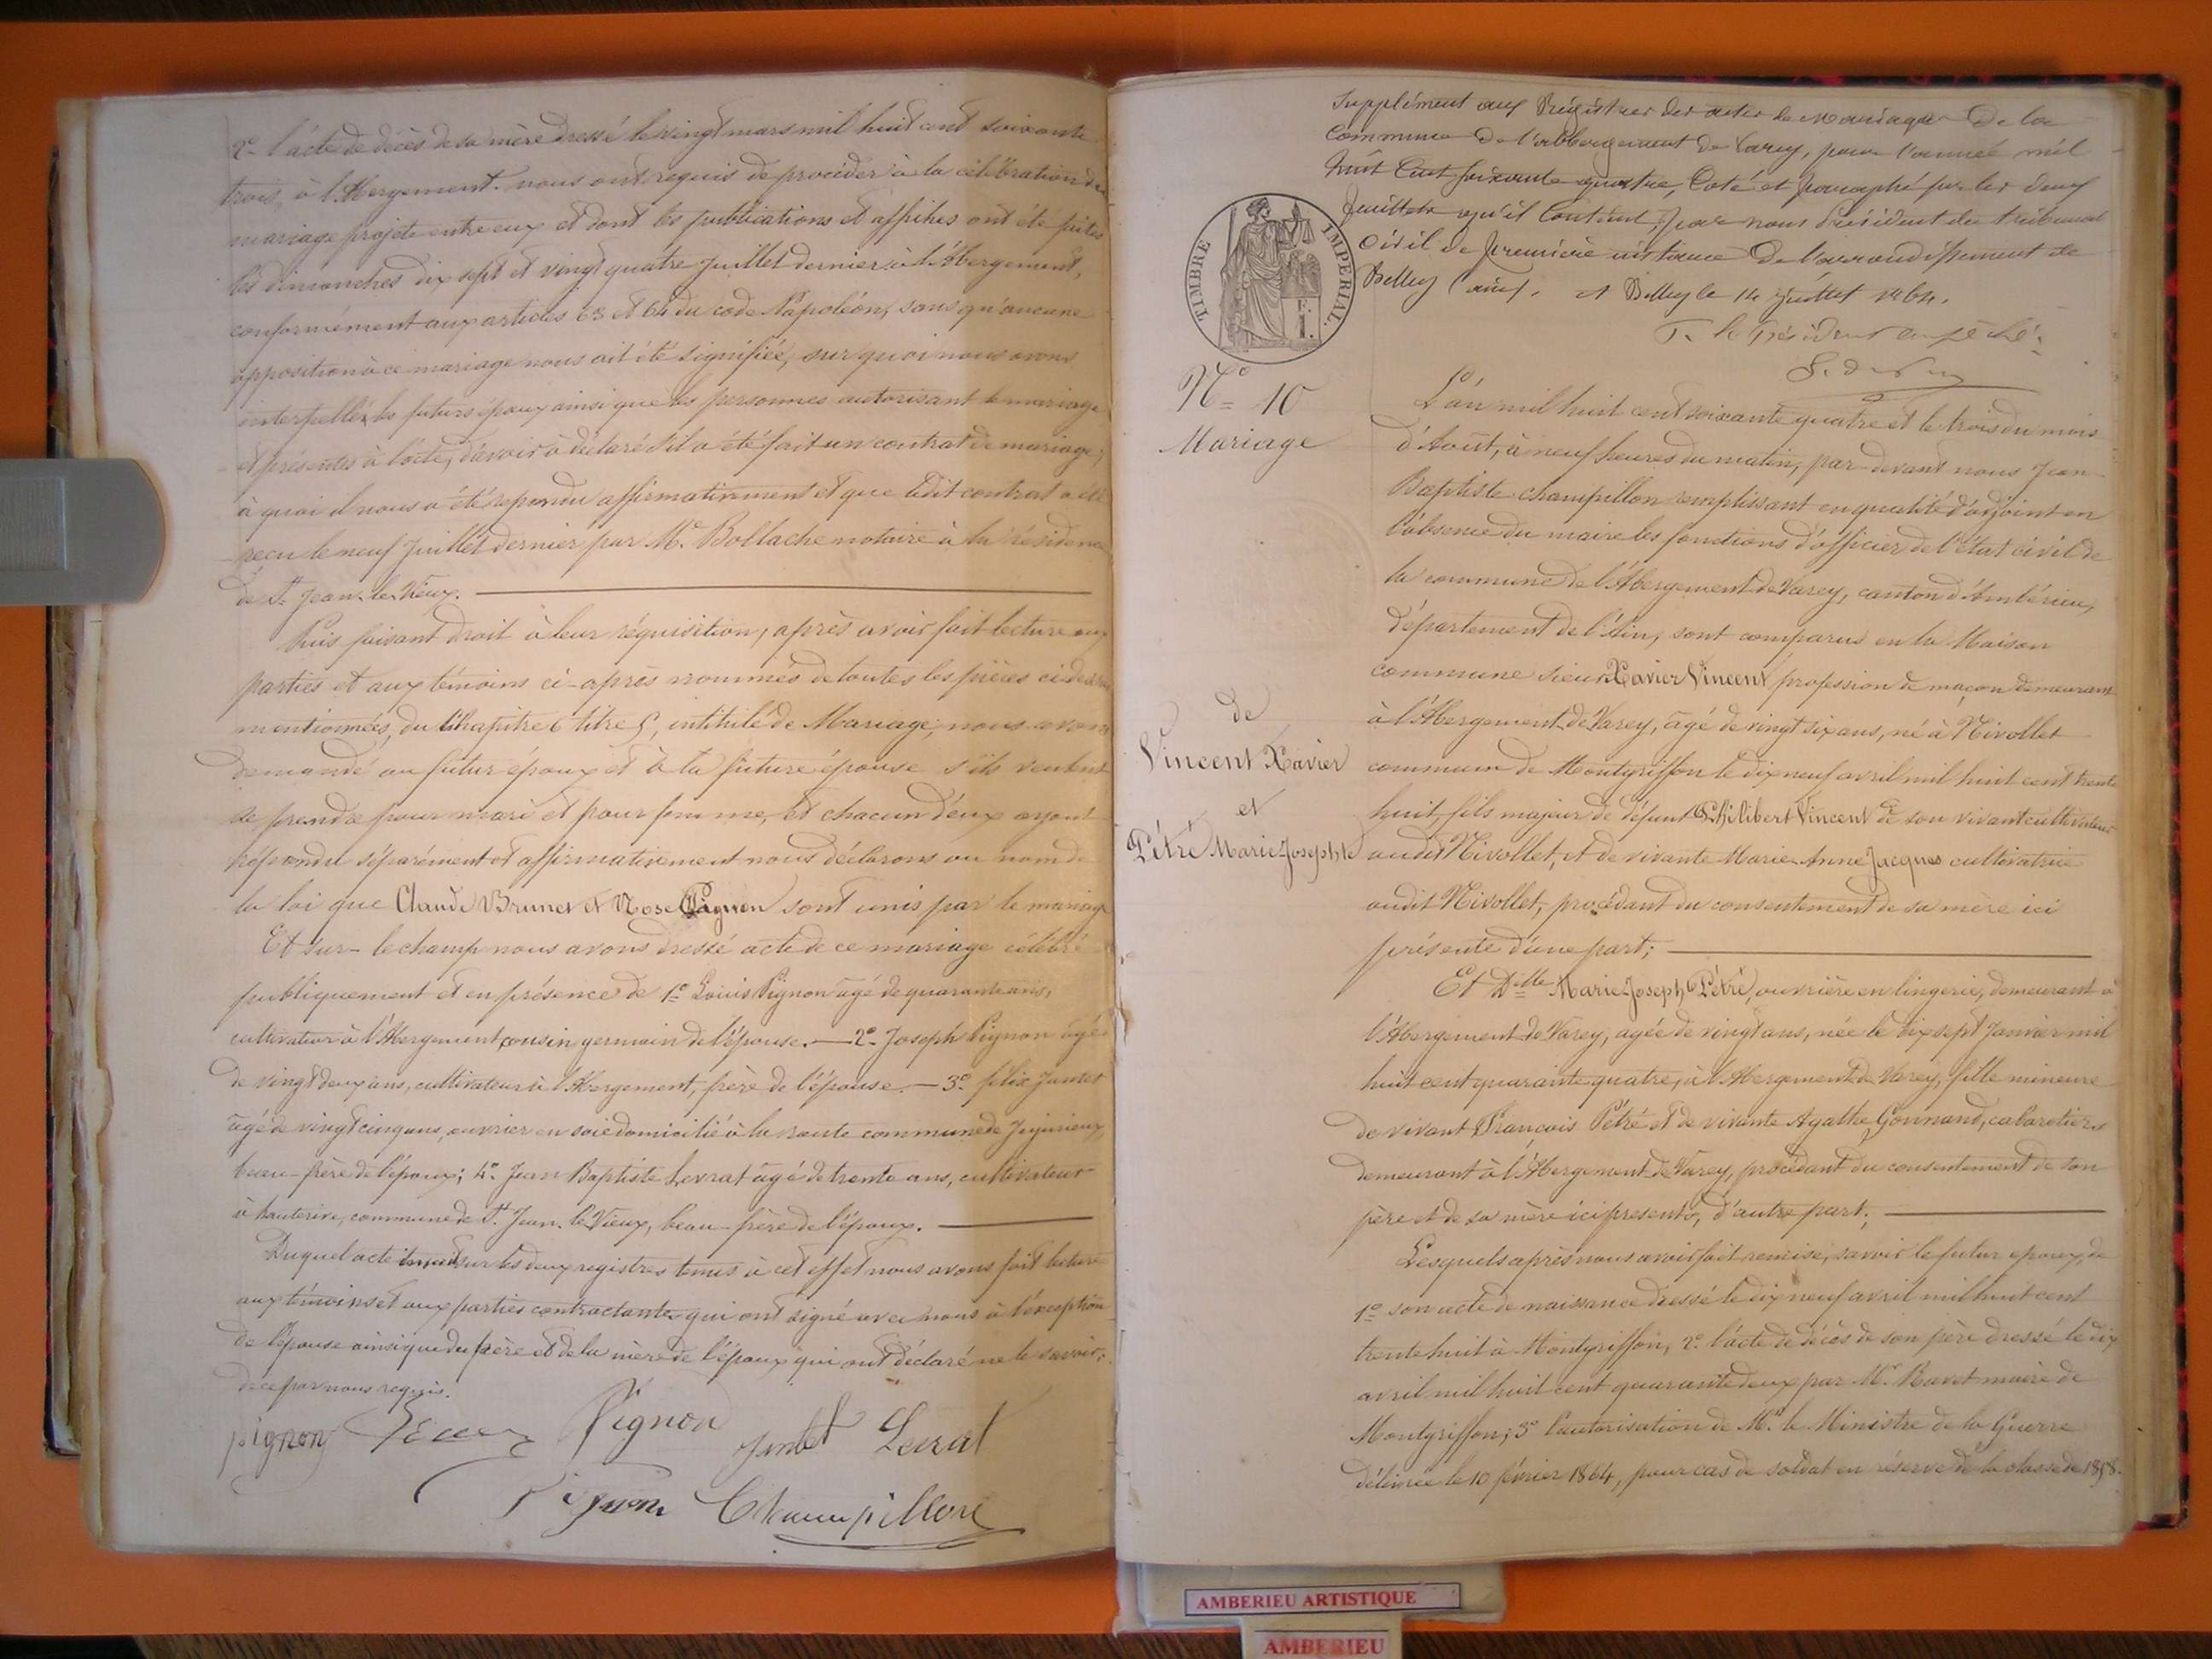 2º l'acte de décès de sa mère dressé le vingt mars mil huit cent soixante
trois, à l'Abergement. nous ont requis de procéder à la célébration du
mariage projeté entre eux et dont les publications et affiches ont été faites
les dimanches dix sept et vingt quatre Juillet dernier à l'Abergement,
conformément aux articles 63 et 64 du code Napoléon, sans qu'aucune
opposition à ce mariage nous ait été signifiée, sur quoi nous avons
interpellés les futurs époux ainsi que les personnes autorisant le mariage
et présentes à l'acte, d'avoir à déclaré s'il a été fait un contrat de mariage;
à quoi il nous a été repondu affirmativement et que ledit contrat a été
reçu le neuf Juillet dernier par Me. Bollache notaire à la résidence
de St. Jean-le-Vieux.
Puis faisant droit à leur réquisition, après avoir fait lecture aux
parties et aux témoins ci-après nommés de toutes les pièces ci-dessus
mentionnées, du Chapitre 6 titre 5, intitulé de Mariage, nous avons
demandé au futur époux et à la future épouse s'ils veulent
se prendre pour mari et pour femme, et chacun d'eux ayant
répondu séparément et affirmativement nous déclarons au nom de
la loi que Claude Brunet et Rose Pignon sont unis par le mariage
Et sur-le champ nous avons dressé acte de ce mariage célébré
publiquement et en présence de 1º Louis Pignon âgé de quarante ans,
cultivateur à l'Abergement cousin germain de l'épouse. — 2º Joseph Pignon âgé
de vingt deux ans, cultivateur à l'Abergement, frère de l'épouse. — 3º félix Jantet
âgé de vingt cinq ans, ouvrier en soie domicilié à la route commune de Jujurieux,
beau-frère de l'époux; 4º. Jean Baptiste Levrat âgé de trente ans, cultivateur
à hauterive, commune de St. Jean-le Vieux, beau-frère de l'époux.
Duquel acte inscrit sur les deux registres tenus à cet effet nous avons fait lecture
aux témoins et aux parties contractantes qui ont signé avec nous à l'exception
de l'épouse ainsi que du père et de la mère de l'époux qui ont déclaré ne le savoir;
de ce par nous requis.
pignon Pignon Jantet Levrat
Pignon Champillon
Supplément aux Régistres des actes de mariage De la
Commune De l'abbergement de Varey, pour l'année mil
huit Cent soixante quatre, Coté et paraphé sur les deux
feuillets qu'il Contient, par nous Président du tribunal
Civil de première instance De l'arrondissement de
Belley (ain). à Belley le 14 Juillet 1864.
P. le Président empêché:
TIMBRE IMPERIAL.
1 F.
Nº 10
Mariage
de
Vincent Xavier
et
Pétré Marie Josephte
L'an mil huit cent soixante quatre et le trois du mois
d'Août, à neuf heures du matin, par-devant nous Jean-
Baptiste champillon remplissant en qualité d'adjoint en
l'absence du maire les fonctions d'officier de l'état civil de
la commune de l'Abergement-de-Varey, canton d'Ambérieu,
département de l'Ain, sont comparus en la Maison
commune sieur Xavier Vincent profession de maçon demeurant
à l'Abergement-de-Varey, âgé de vingt six ans, né à Nivollet
commune de Montgriffon le dix neuf avril mil huit cent trente
huit, fils majeur de défunt Philibert Vincent de son vivant cultivateur
audit Nivollet, et de vivante Marie-Anne Jacques cultivatrice
audit Nivollet, procédant du consentement de sa mère ici
présente d'une part;
Et Dlle Marie Joseph Pétré, ouvrière en lingerie, demeurant à
l'Abergement-de-Varey, agée de vingt ans, née le dix sept Janvier mil
huit cent quarante quatre, à l'Abergement-de-Varey, fille mineure
de vivant François Pétré et de vivante Agathe Gounand, cabaretiers
demeurant à l'Abergement-de-Varey, procédant du consentement de son
père et de sa mère ici presents, d'autre part.
Lesquels après nous avoir fait remise, savoir le futur epoux, de
1º son acte de naissance dressé le dix neuf avril mil huit cent
trente huit à Montgriffon, 2º. l'acte de décès de son père dressé le dix
avril mil huit cent quarante deux par Mr. Ravet maire de
Montgriffon; 3º l'autorisation de Mr. le Ministre de la Guerre
délivrée le 10 février 1864, pour cas de soldat en réserve de la classe de 1858.
AMBERIEU ARTISTIQUE
AMBERIEU